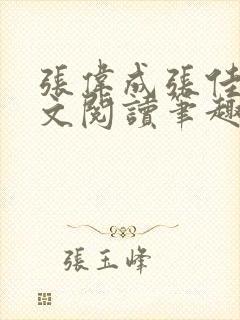 張偉成張佳
文閱讀筆趣
張玉峰